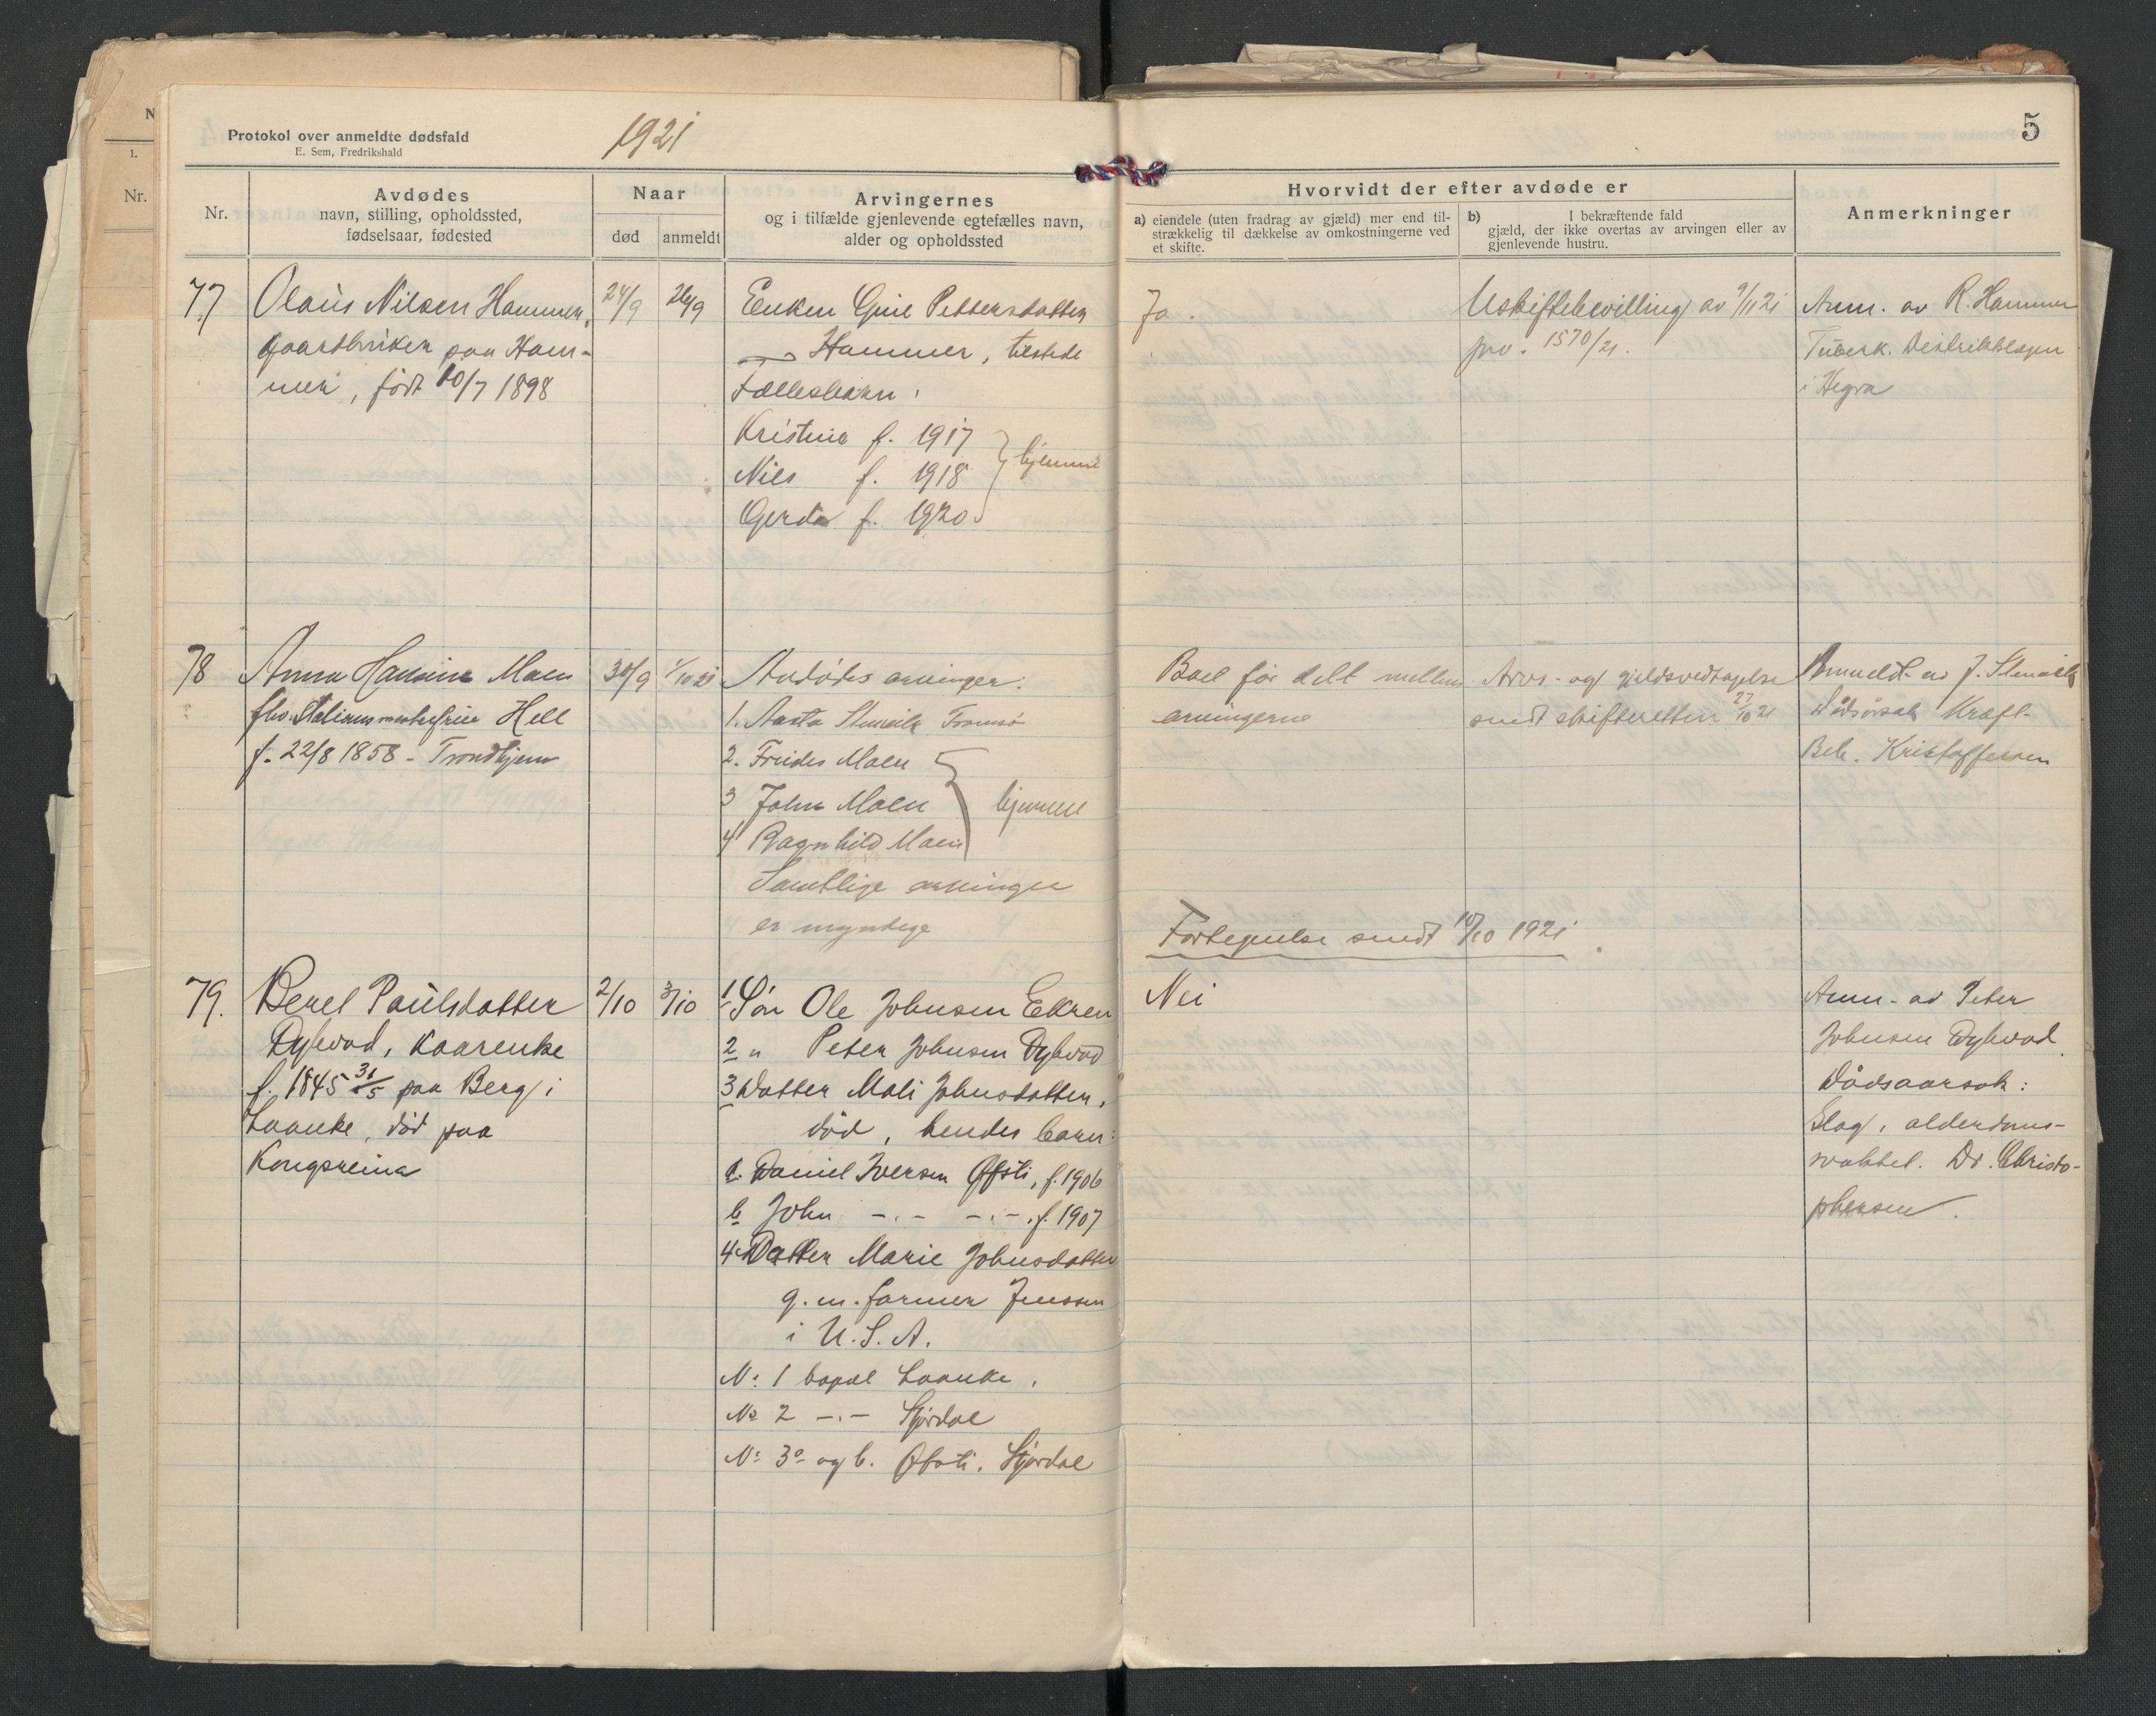 Protokol over anmeldte dødsfald
E. Sem, Fredrikshald
1921
5
Nr.
Avdødes
navn, stilling, opholdssted,
fødselsaar, fødested
Naar
død
anmeldt
Arvingernes
og i tilfælde gjenlevende egtefælles navn,
alder og opholdssted
Hvorvidt der efter avdøde er
a) eiendele (uten fradrag av gjæld) mer end til-
strækkelig til dækkelse av omkostningerne ved
et skifte.
b) I bekræftende fald
gjæld, der ikke overtas av arvingen eller av
gjenlevende hustru.
Anmerkninger
77
Olaus Nilsen Hammer,
gaardbruker paa Ham-
mer, født 10/7 1898
24/9
26/9
Enken Gurie Pettersdatter
Hammer, tilstede
Fællesbarn:
Kristine f. 1917
Nils f. 1918
Gerda f. 1920
hjemme
Ja.
Uskiftebevilling av 9/11 21
prv. 1570/21.
Anm. av R. Hammer
Tuberk. Distriktslægen
i Hegra
78
Anna Hansine Moen
fhv. Stationsmesterfrue Hell
f. 22/8 1858 - Trondhjem
30/9
1/10 21
Avdødes arvinger:
1. Aasta Stensvik Tromsø
2. Fridis Moen
3 John Moen
4 Ragnhild Moen
hjemme
Samtlige arvinger
er myndige
Boet før delt mellem
arvingerne
Arvs- og gjeldsvedtagelse
sendt skifteretten 27/10 21
Anmeldt av J. Stensvik
Dødsårsak Kræft-
Beh. Kristoffersen
Fortegnelse sendt 10/10 1921
79.
Beret Paulsdatter
Dybvad, kaarenke
f. 1845 31/5 paa Berg i
Laanke, død paa
Kongsreina
2/10
3/10
1 Søn Ole Johnsen Ekren
2 " Peter Johnsen Dybvad
3 Datter Mali Johnsdatter,
død, hendes barn:
a. Daniel Iversen Øfsti, f. 1906
b John -.- -.-, f. 1907
4 Datter Marie Johnsdatter
g. m. farmer Jenssen
i U. S. A.
No 1 bopæl Laanke.
No 2 -.- Stjørdal
No 3 a og b. Øfsti, Stjørdal
Nei
Anm. av Peter
Johnsen Dybvad
Dødsaarsak:
Slag, alderdoms-
svakhet. Dr. Christo-
phersen.